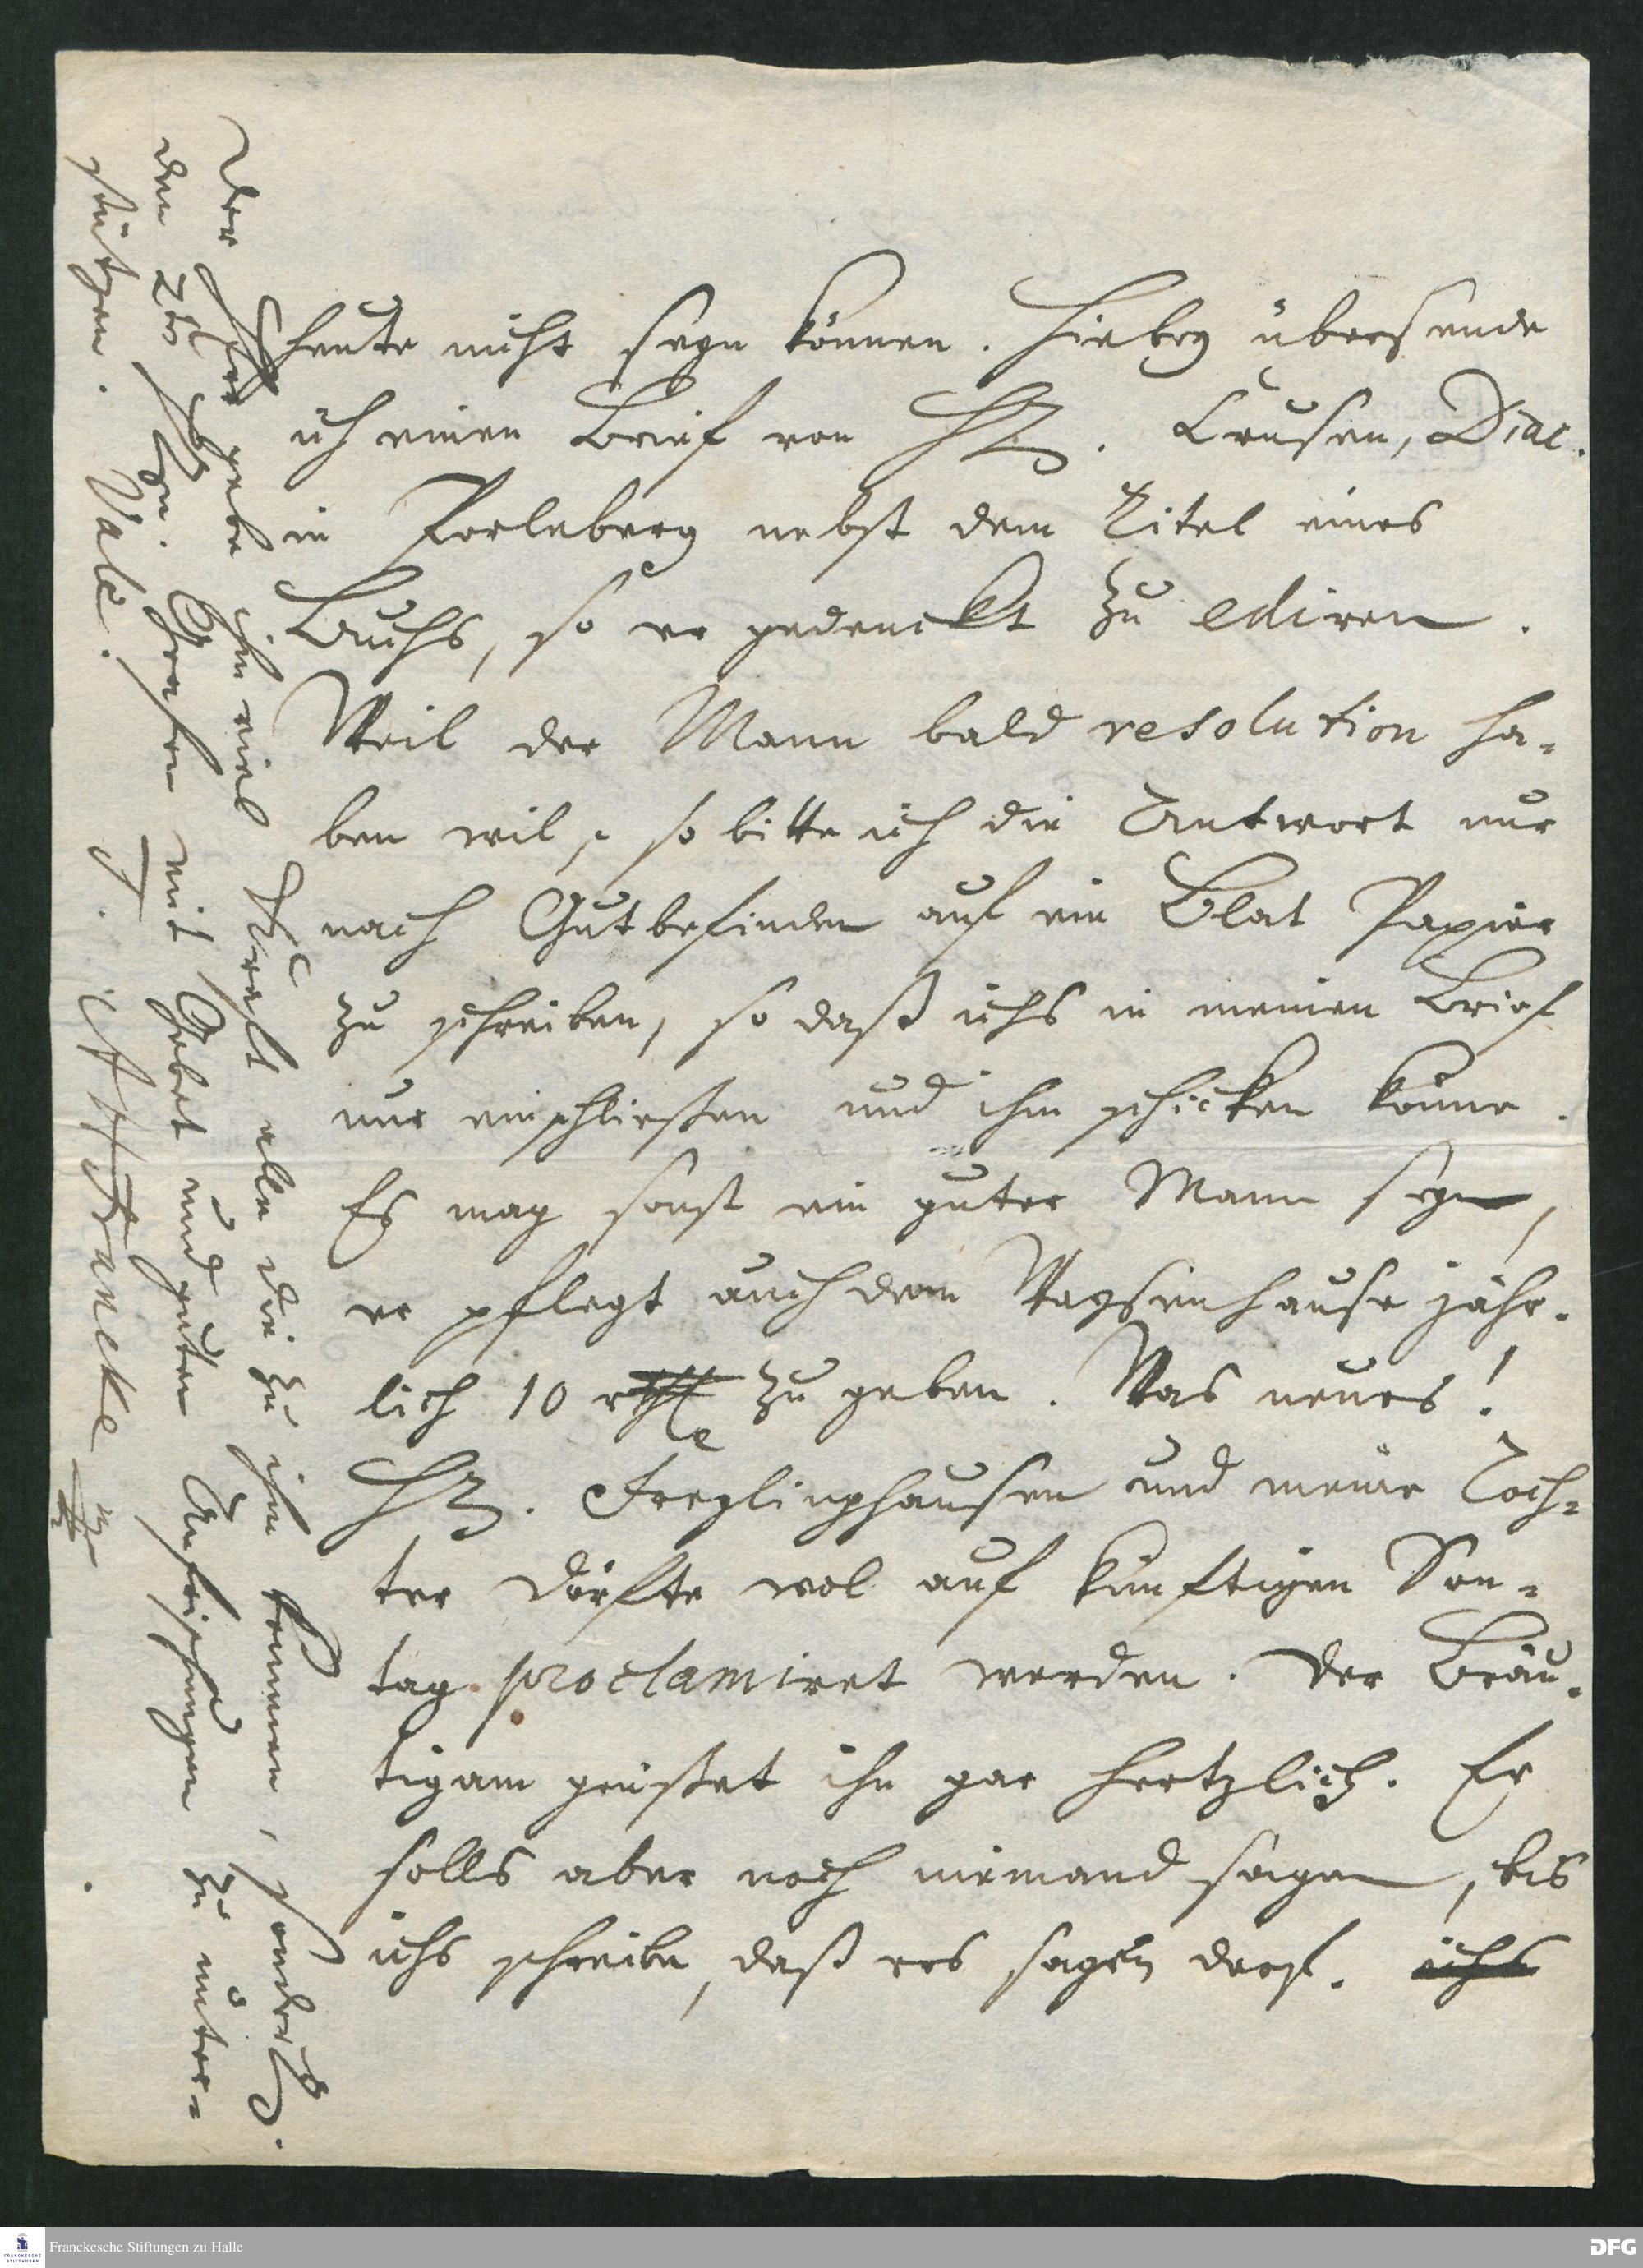 heute nicht seyn können. Hiebey übersende
ich einen Brief von Hn. Crusen, Diac.
in Perleberg nebst dem Titel eines
Buchs, so er gedenckt zu ediren.
Weil der Mann bald resolution ha-
ben wil, so bitte ich die Antwort nur
nach Gutbefinden auf ein Blat Papier
zu schreiben, so daß ichs in meinen Brief
nur einschließen und ihm schicken könne.
Es mag sonst ein guter Mann seyn,
er pflegt auch dem Waysenhause jähr-
lich 10 rthle zu geben. Was neues!
Hn. Freylinghausen und meine Toch-
ter dörffte wol auf künfftigen Son-
tag proclamiret werden. Der Bräu-
tigam grüßet ihn gar hertzlich. Er
solls aber noch niemand sagen, bis
ichs schreibe, daß ers sagen derf. ichs
Der Herr gebe ihm viel Krafft alle die zu ihm kommen, sonderl.
den 24ts Hn. Grafen mit Gebet und guten Anfrischungen zu unter-
stützen. Vale. AHFrancke
Franckesche Stiftungen zu Halle
DFG